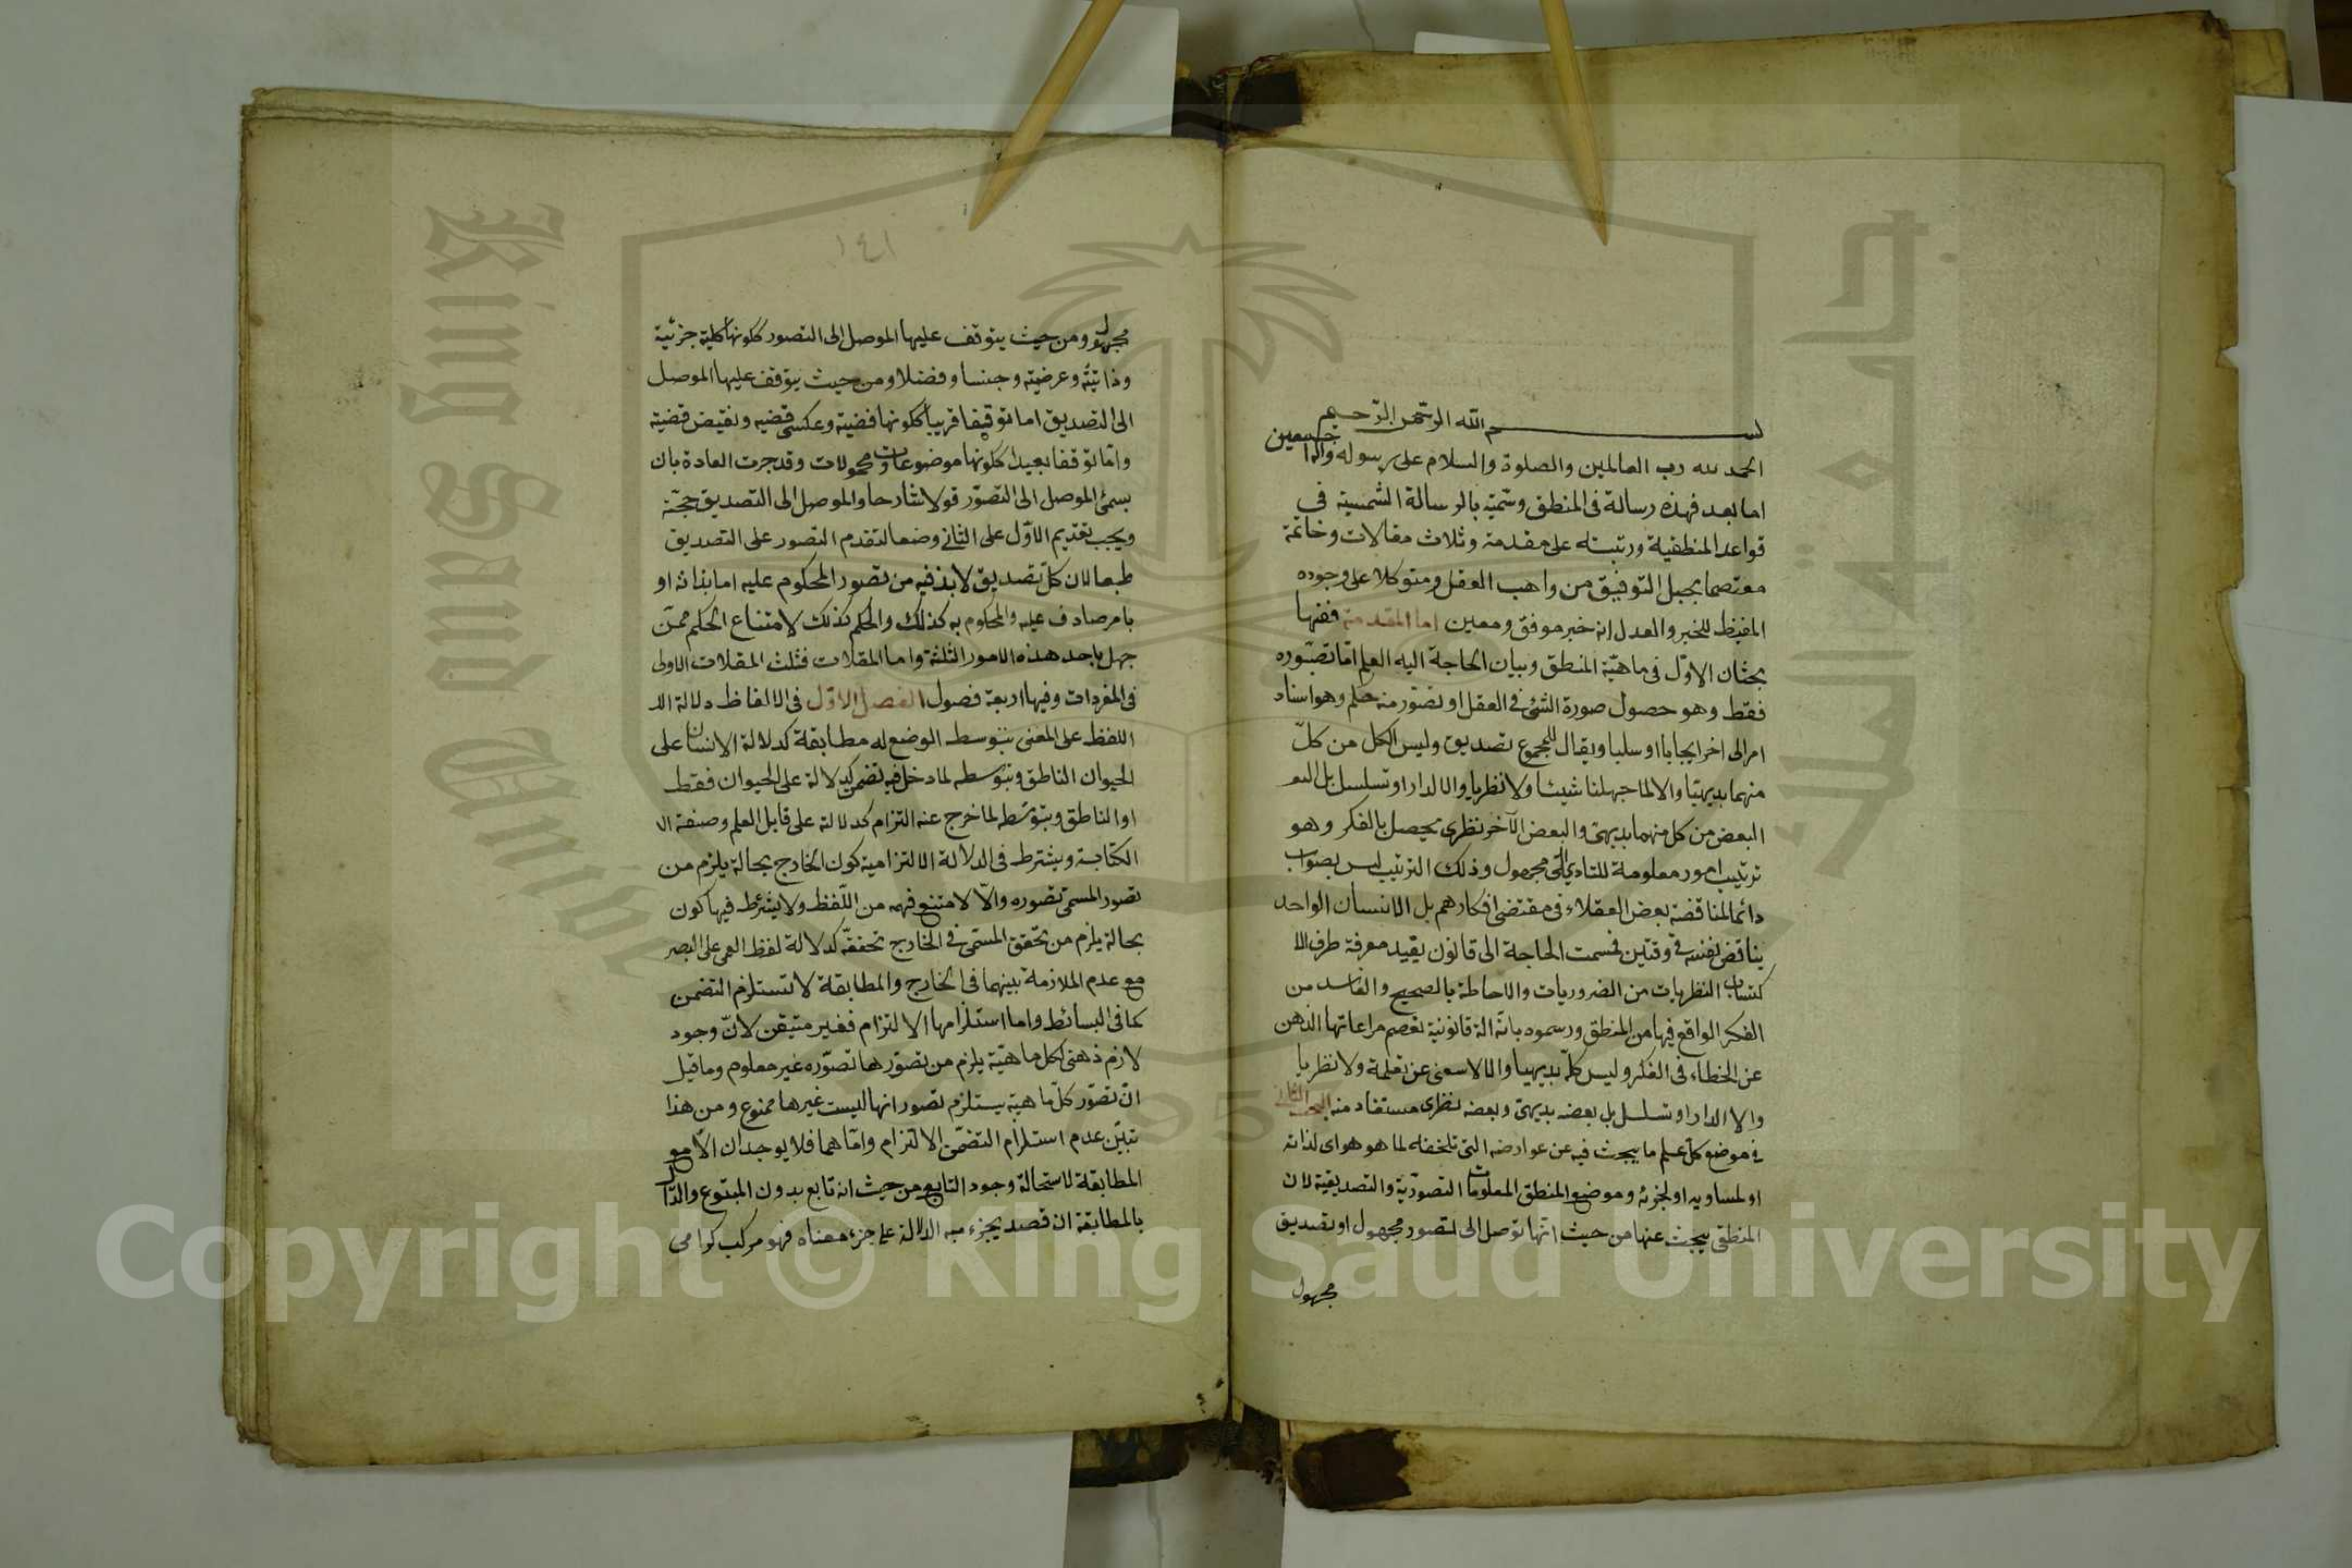 بسم الله الرحمن الرحيم
الحمد لله رب العالمين والصلوة والسلام على رسوله واله اجمعين
اما بعد فهذه رسالة فى المنطق وسمّيته بالرسالة الشمسية في
قواعد المنطقية ورتبته على مقدمة وثلاث مقالات وخاتمة
معتصما بحبل التوفيق من واهب العقل ومتوكلا على وجوده
المفيظ للخير والعدل انه خير موفق ومعين اما المقدمة ففيها
بحثان الاوّل فى ماهيّة المنطق وبيان الحاجة اليه العلم امّا تصّوره
فقط وهو حصول صورة الشئ في العقل او تصّور منه حكم وهو اسناد
امر الى اخر ايجابا او سلبا ويقال للمجموع تصديق وليس الكل من كلّ
منهما بديهيّا والا لما جهلنا شيئا ولا نظريا والا لدار او تسلسل بل
البعض من كل منهما بديهىّ والبعض الآخر نظرى يحصل بالفكر وهو
ترتيب امور معلومة للتادى الى مجهول وذلك الترتيب ليس بصواب
دائما لمناقضة بعض العقلاء فى مقتضى افكارهم بل الانسان الواحد
يناقض نفسه في وقتين فمست الحاجة الى قانون يفيد معرفة طرق الا
كتساب النظريات من الضروريات والاحاطة بالصحيح والفاسد من
الفكر الواقع فيها من المنطق ورسموه بانّه الة قانونية تعصم مراعاتها الذهن
عن الخطاء فى الفكر وليس كلّه بديهيا والا لاستغنى عن تعلمه ولا نظريا
والا لدار او تسلسل بل بعضه بديهىّ وبعضه نظرى مستفاد منه البحث الثاني
في موضع كلّ علم ما يبحث فيه عن عوارضه التى تلحقه لما هو هو اى لذاته
او لمساويه او لجزئه وموضع المنطق المعلومات التصوّريّة والتصديقية لان
المنطقى يبحث عنها من حيث انّها توصل الى تصور مجهول او تصديق
مجهول
١٤١
مجهول ومن حيث يتوقف عليها الموصل الى التصور ككونها كلية جزئية
وذاتيّة وعرضيّة وجنسا وفصلا ومن حيث يتوقف عليها الموصل
الى التصديق اما توقيفا قريبا ككونها قضية وعكس قضيه ونقيض قضية
وامّا توقفا بعيدا ككونها موضوعات ومحمولات وقد جرت العادة بان
يسمّى الموصل الى التصوّر قولا شارحا والموصل الى التصديق حجّة
ويجب تقديم الاوّل على الثانى وضعا لتقدم التصور على التصديق
طبعا لان كلّ تصديق لا بد فيه من تصور المحكوم عليه اما بذاته او
بامر صادف عليه والمحكوم به كذلك والحكم كذلك لامتناع الحكم ممّن
جهل باحد هذه الامور الثلثة واما المقلات فثلث المقلات الاولى
فى المفردات وفيها اربعة فصول الفصل الاوّل فى الالفاظ دلالة الد
اللفظ على المعنى بتوسط الوضع له مطابقة كدلالة الانسان على
الحيوان الناطق وبتوّسطه لما دخل فيه تضمن كدلالة على الحيوان فقط
او الناطق وبتوّسطه لما خرج عنه التزام كدلالة على قابل العلم وصنعة ال
الكتابة ويشترط فى الدلالة الالتزامية كون الخارج بحالة يلزم من
تصور المسمّى تصوره والاّ لامتنع فهمه من اللّفظ ولا يشترط فيها كون
بحالة يلزم من تحّقق المسمّى في الخارج تحققه كدلالة لفظ العمى على البصر
مع عدم الملازمة بينهما فى الخارج والمطابقة لا تستلزم التضمن
كما فى البسائط واما استلزامها الالتزام فغير متيقن لانّ وجود
لازم ذهنى لكل ماهيّة يلزم من تصوّرهما تصوّره غير معلوم وما قيل
انّ تصوّر كلّ ماهيّة يستلزم تصور انها ليست غيرها ممنوع ومن هذا
تبيّن عدم استلزام التضمّن الالتزام وامّا هما فلا يوجدان الاّ مع
المطابقة لاستحالة وجود التابع من حيث انه تابع بدون المتبوع والدّال
بالمطابقة ان قصد بجزء منه الدلالة على جزء معناه فهو مركب كرامى